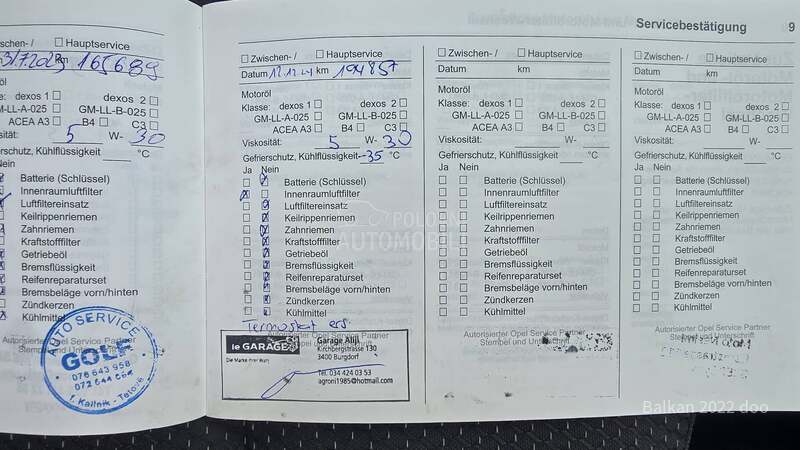 Servicebestätigung 9
Hauptservice
31.7.2023 km 165689
Motoröl
dexos 1 dexos 2
GM-LL-A-025 GM-LL-B-025
ACEA A3 B4 C3
5 W- 30
Gefrierschutz, Kühlflüssigkeit °C
Nein
Batterie (Schlüssel)
Innenraumluftfilter
Luftfiltereinsatz
Keilrippenriemen
Zahnriemen
Kraftstofffilter
Getriebeöl
Bremsflüssigkeit
Reifenreparaturset
Bremsbeläge vorn/hinten
Zündkerzen
Kühlmittel
AUTO SERVICE
GOLF
Zwischen-/ Hauptservice
Datum 12.12.24 km 194857
Motoröl
Klasse: dexos 1 dexos 2
GM-LL-A-025 GM-LL-B-025
ACEA A3 B4 C3
Viskosität: 5 W- 30
Gefrierschutz, Kühlflüssigkeit -35 °C
Ja Nein
Batterie (Schlüssel)
Innenraumluftfilter
Luftfiltereinsatz
Keilrippenriemen
Zahnriemen
Kraftstofffilter
Getriebeöl
Bremsflüssigkeit
Reifenreparaturset
Bremsbeläge vorn/hinten
Zündkerzen
Kühlmittel
Termostat ers
Autorisierter Opel Service Partner
le GARAGE
Die Marke Ihrer Wahl
Garage Aliji
Kirchbergstrasse 130
3400 Burgdorf
Tel. 034 424 03 53
agroni1985@hotmail.com
Zwischen-/ Hauptservice
Datum km
Motoröl
Klasse: dexos 1 dexos 2
GM-LL-A-025 GM-LL-B-025
ACEA A3 B4 C3
Viskosität: W-
Gefrierschutz, Kühlflüssigkeit °C
Ja Nein
Batterie (Schlüssel)
Innenraumluftfilter
Luftfiltereinsatz
Keilrippenriemen
Zahnriemen
Kraftstofffilter
Getriebeöl
Bremsflüssigkeit
Reifenreparaturset
Bremsbeläge vorn/hinten
Zündkerzen
Kühlmittel
Autorisierter Opel Service Partner
Stempel und Unterschrift
Zwischen-/ Hauptservice
Datum km
Motoröl
Klasse: dexos 1 dexos 2
GM-LL-A-025 GM-LL-B-025
ACEA A3 B4 C3
Viskosität: W-
Gefrierschutz, Kühlflüssigkeit °C
Ja Nein
Batterie (Schlüssel)
Innenraumluftfilter
Luftfiltereinsatz
Keilrippenriemen
Zahnriemen
Kraftstofffilter
Getriebeöl
Bremsflüssigkeit
Reifenreparaturset
Bremsbeläge vorn/hinten
Zündkerzen
Kühlmittel
Autorisierter Opel Service Partner
Stempel und Unterschrift
POLOVNI
AUTOMOBILI
Balkan 2022 doo